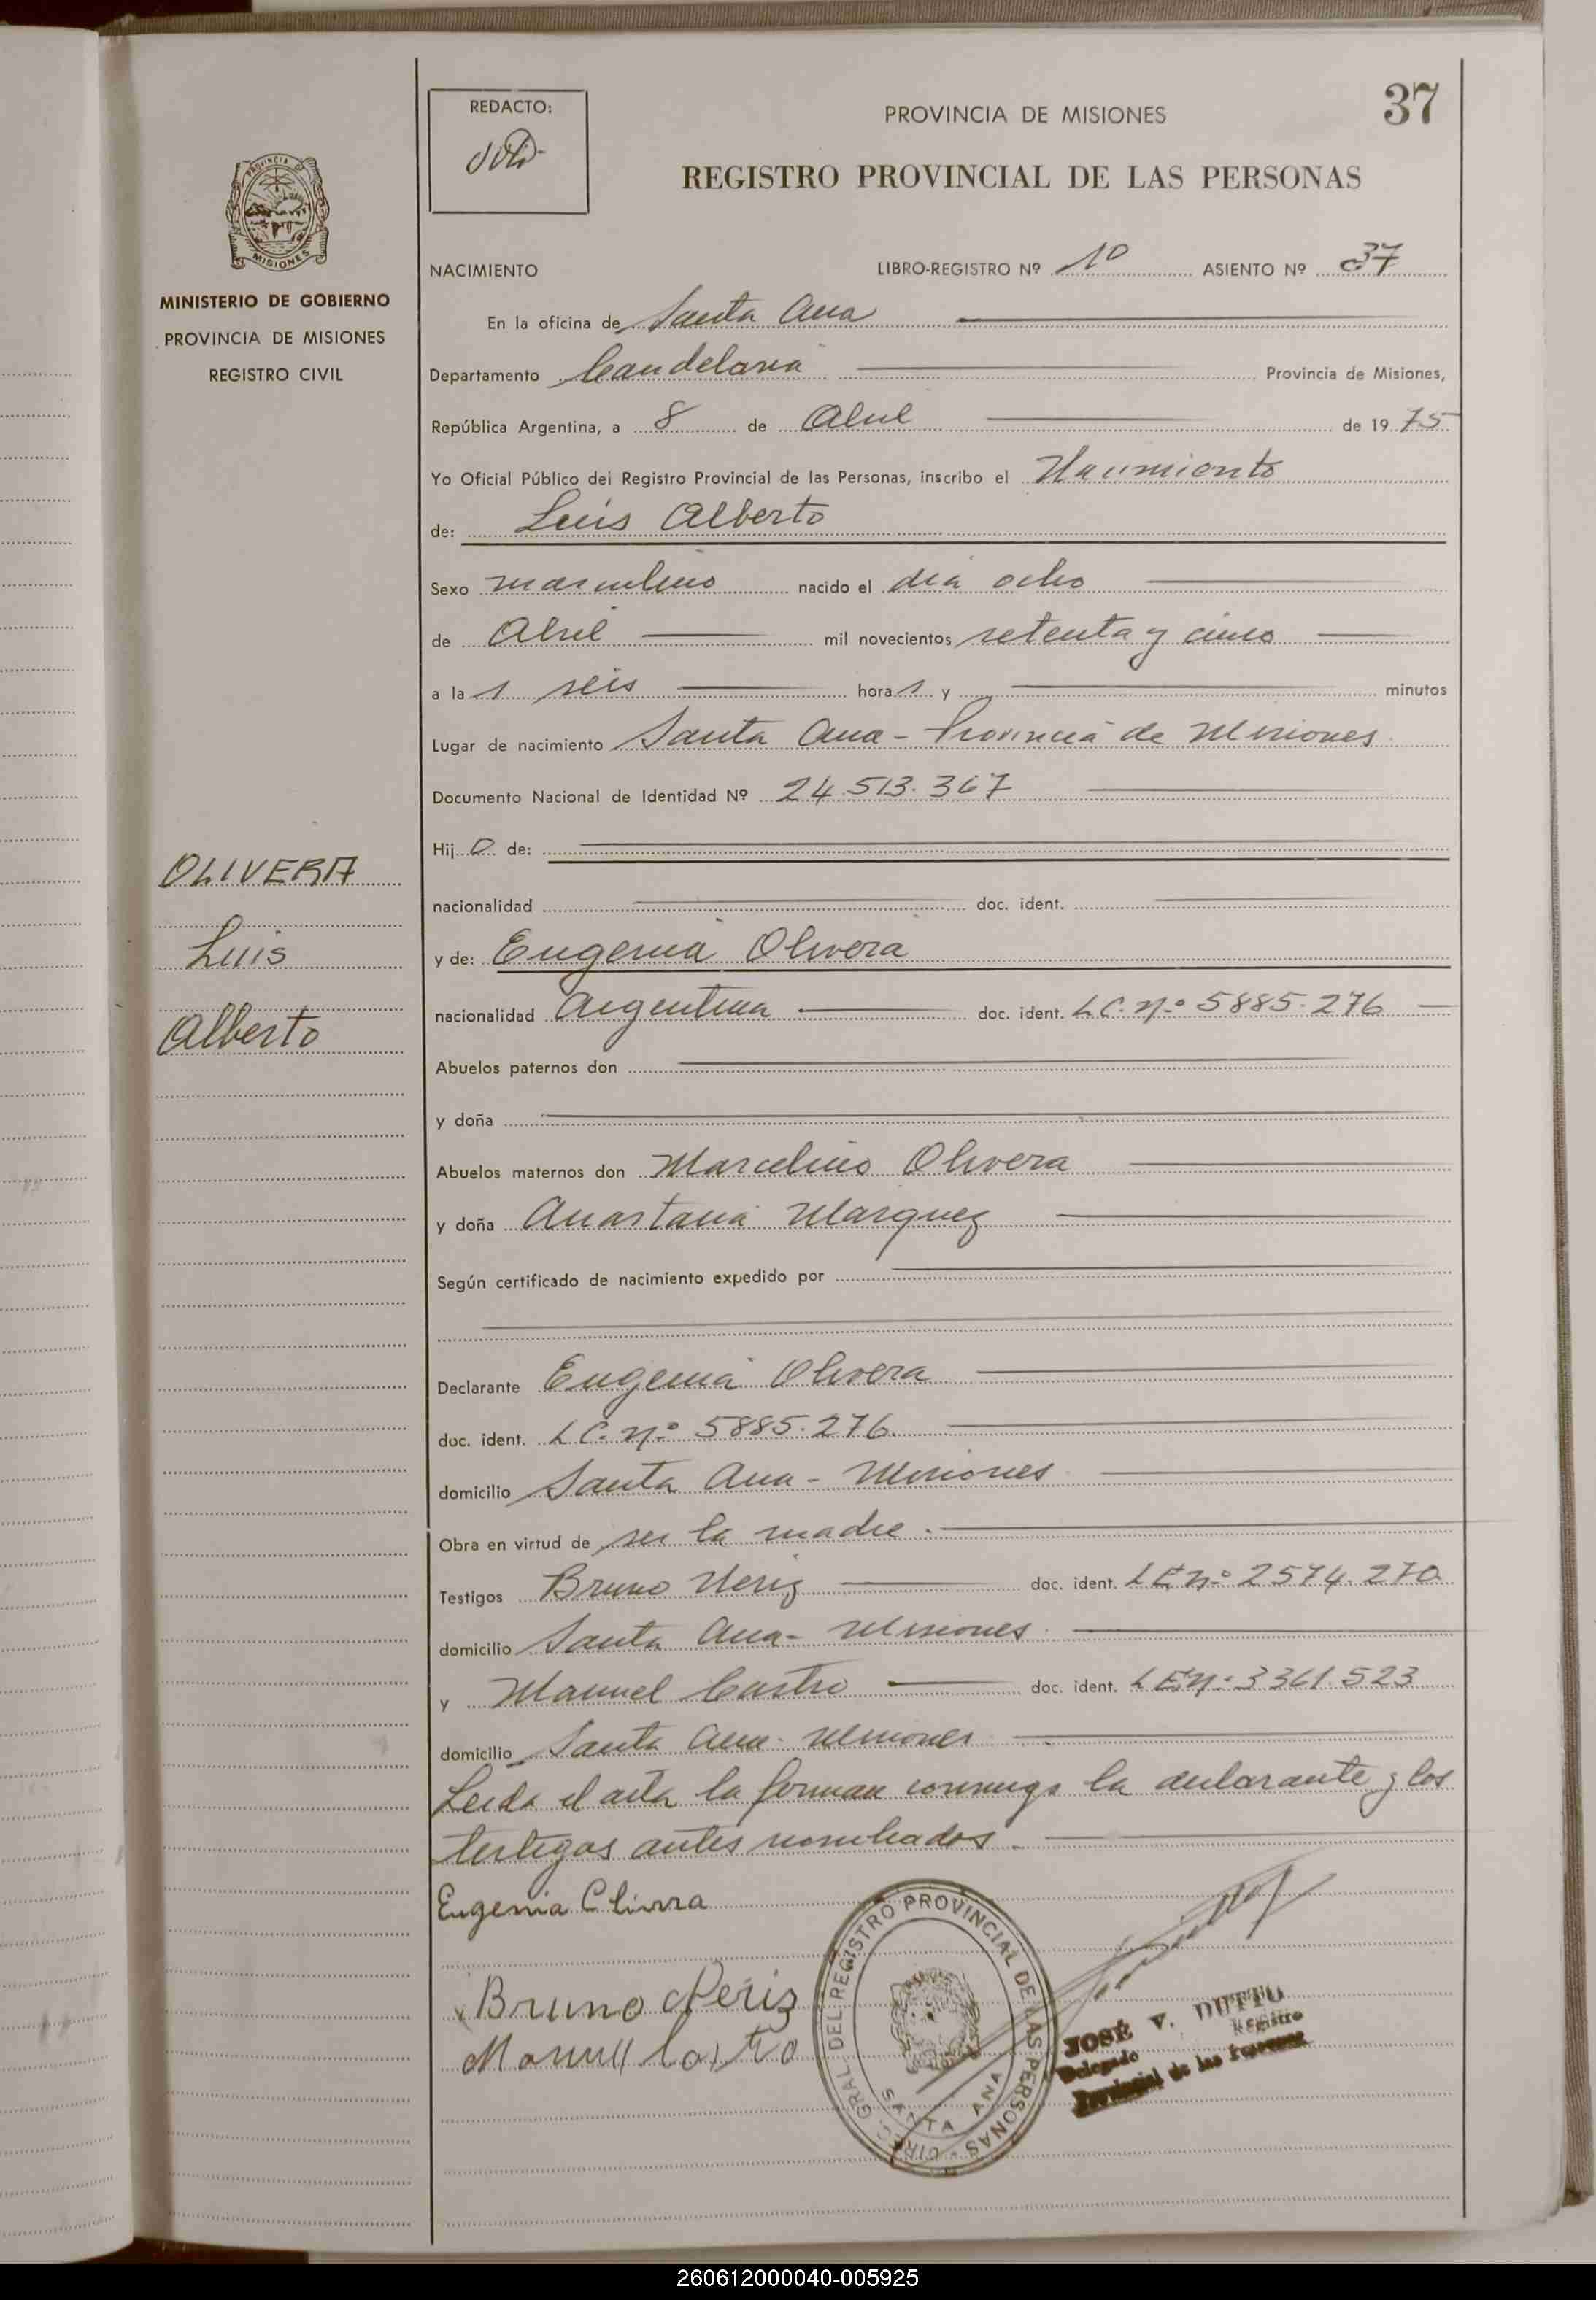 37
REDACTO:
PROVINCIA DE MISIONES
REGISTRO PROVINCIAL DE LAS PERSONAS
PROVINCIA DE
MISIONES
MINISTERIO DE GOBIERNO
PROVINCIA DE MISIONES
REGISTRO CIVIL
NACIMIENTO LIBRO-REGISTRO Nº 1º ASIENTO Nº 37
En la oficina de Santa Ana
Departamento Candelaria Provincia de Misiones,
República Argentina, a 8 de Abril de 1975
Yo Oficial Público del Registro Provincial de las Personas, inscribo el Nacimiento
de: Luis Alberto
Sexo masculino nacido el dia ocho
de Abril mil novecientos setenta y cinco
a las seis horas y minutos
Lugar de nacimiento Santa Ana - Provincia de Misiones
Documento Nacional de Identidad Nº 24.513.367
Hijo de:
nacionalidad doc. ident.
y de: Eugenia Olivera
nacionalidad Argentina doc. ident. L.C. nº 5885.276
Abuelos paternos don
y doña
Abuelos maternos don Marcelino Olivera
y doña Anastacia Marquez
Según certificado de nacimiento expedido por
Declarante Eugenia Olivera
doc. ident. L.C. nº 5885.276.
domicilio Santa Ana - Misiones
Obra en virtud de ser la madre.
Testigos Bruno Neriz doc. ident. L E nº 2574.270
domicilio Santa Ana - Misiones
y Manuel Castro doc. ident. L E nº 3361.523
domicilio Santa Ana - Misiones
Leida el acta la firman conmigo la declarante y los
testigos antes nombrados.
OLIVERA
Luis
Alberto
Eugenia Olivera
Bruno Neriz
Manuel Castro
DIREC. GRAL. DEL REGISTRO PROVINCIAL DE LAS PERSONAS
SANTA ANA
JOSÉ V. DUTTO
Delegado Registro
Provincial de las Personas
260612000040-005925